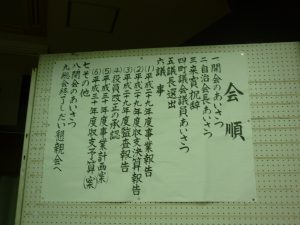 会順
一開会のあいさつ
二自治会長あいさつ
三来賓祝辞
四町議会議員あいさつ
五議長選出
六議事
(1)平成二十九年度事業報告
(2)平成二十九年度収支決算報告
(3)平成二十九年度監査報告
(4)役員改正の承認
(5)平成三十年度事業計画(案)
(6)平成三十年度収支予算(案)
七その他
八閉会のあいさつ
九総会終了しだい懇親会へ